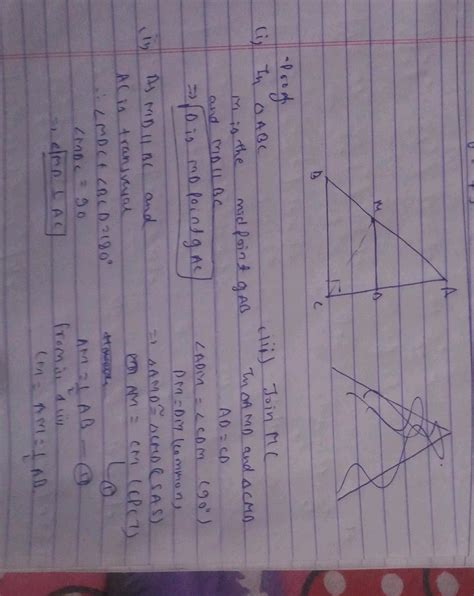 A
M
D
B
C
Proof
(i) In △ABC
M is the midpoint of AB
and MD||BC
⇒ D is MD point of AC
(ii) As MD||BC and
AC is transversal
∴ ∠MDC + ∠BCD = 180°
∠MDC = 90
⇒ MD ⊥ AC
(iii) Join MC
In △AMD and △CMD
AD = CD
∠ADM = ∠CDM (90°)
DM = DM (common)
⇒ △AMD ≅ △CMD (SAS)
AM = CM (CPCT)
AM = 1/2 AB —
from
CM = AM = 1/2 AB